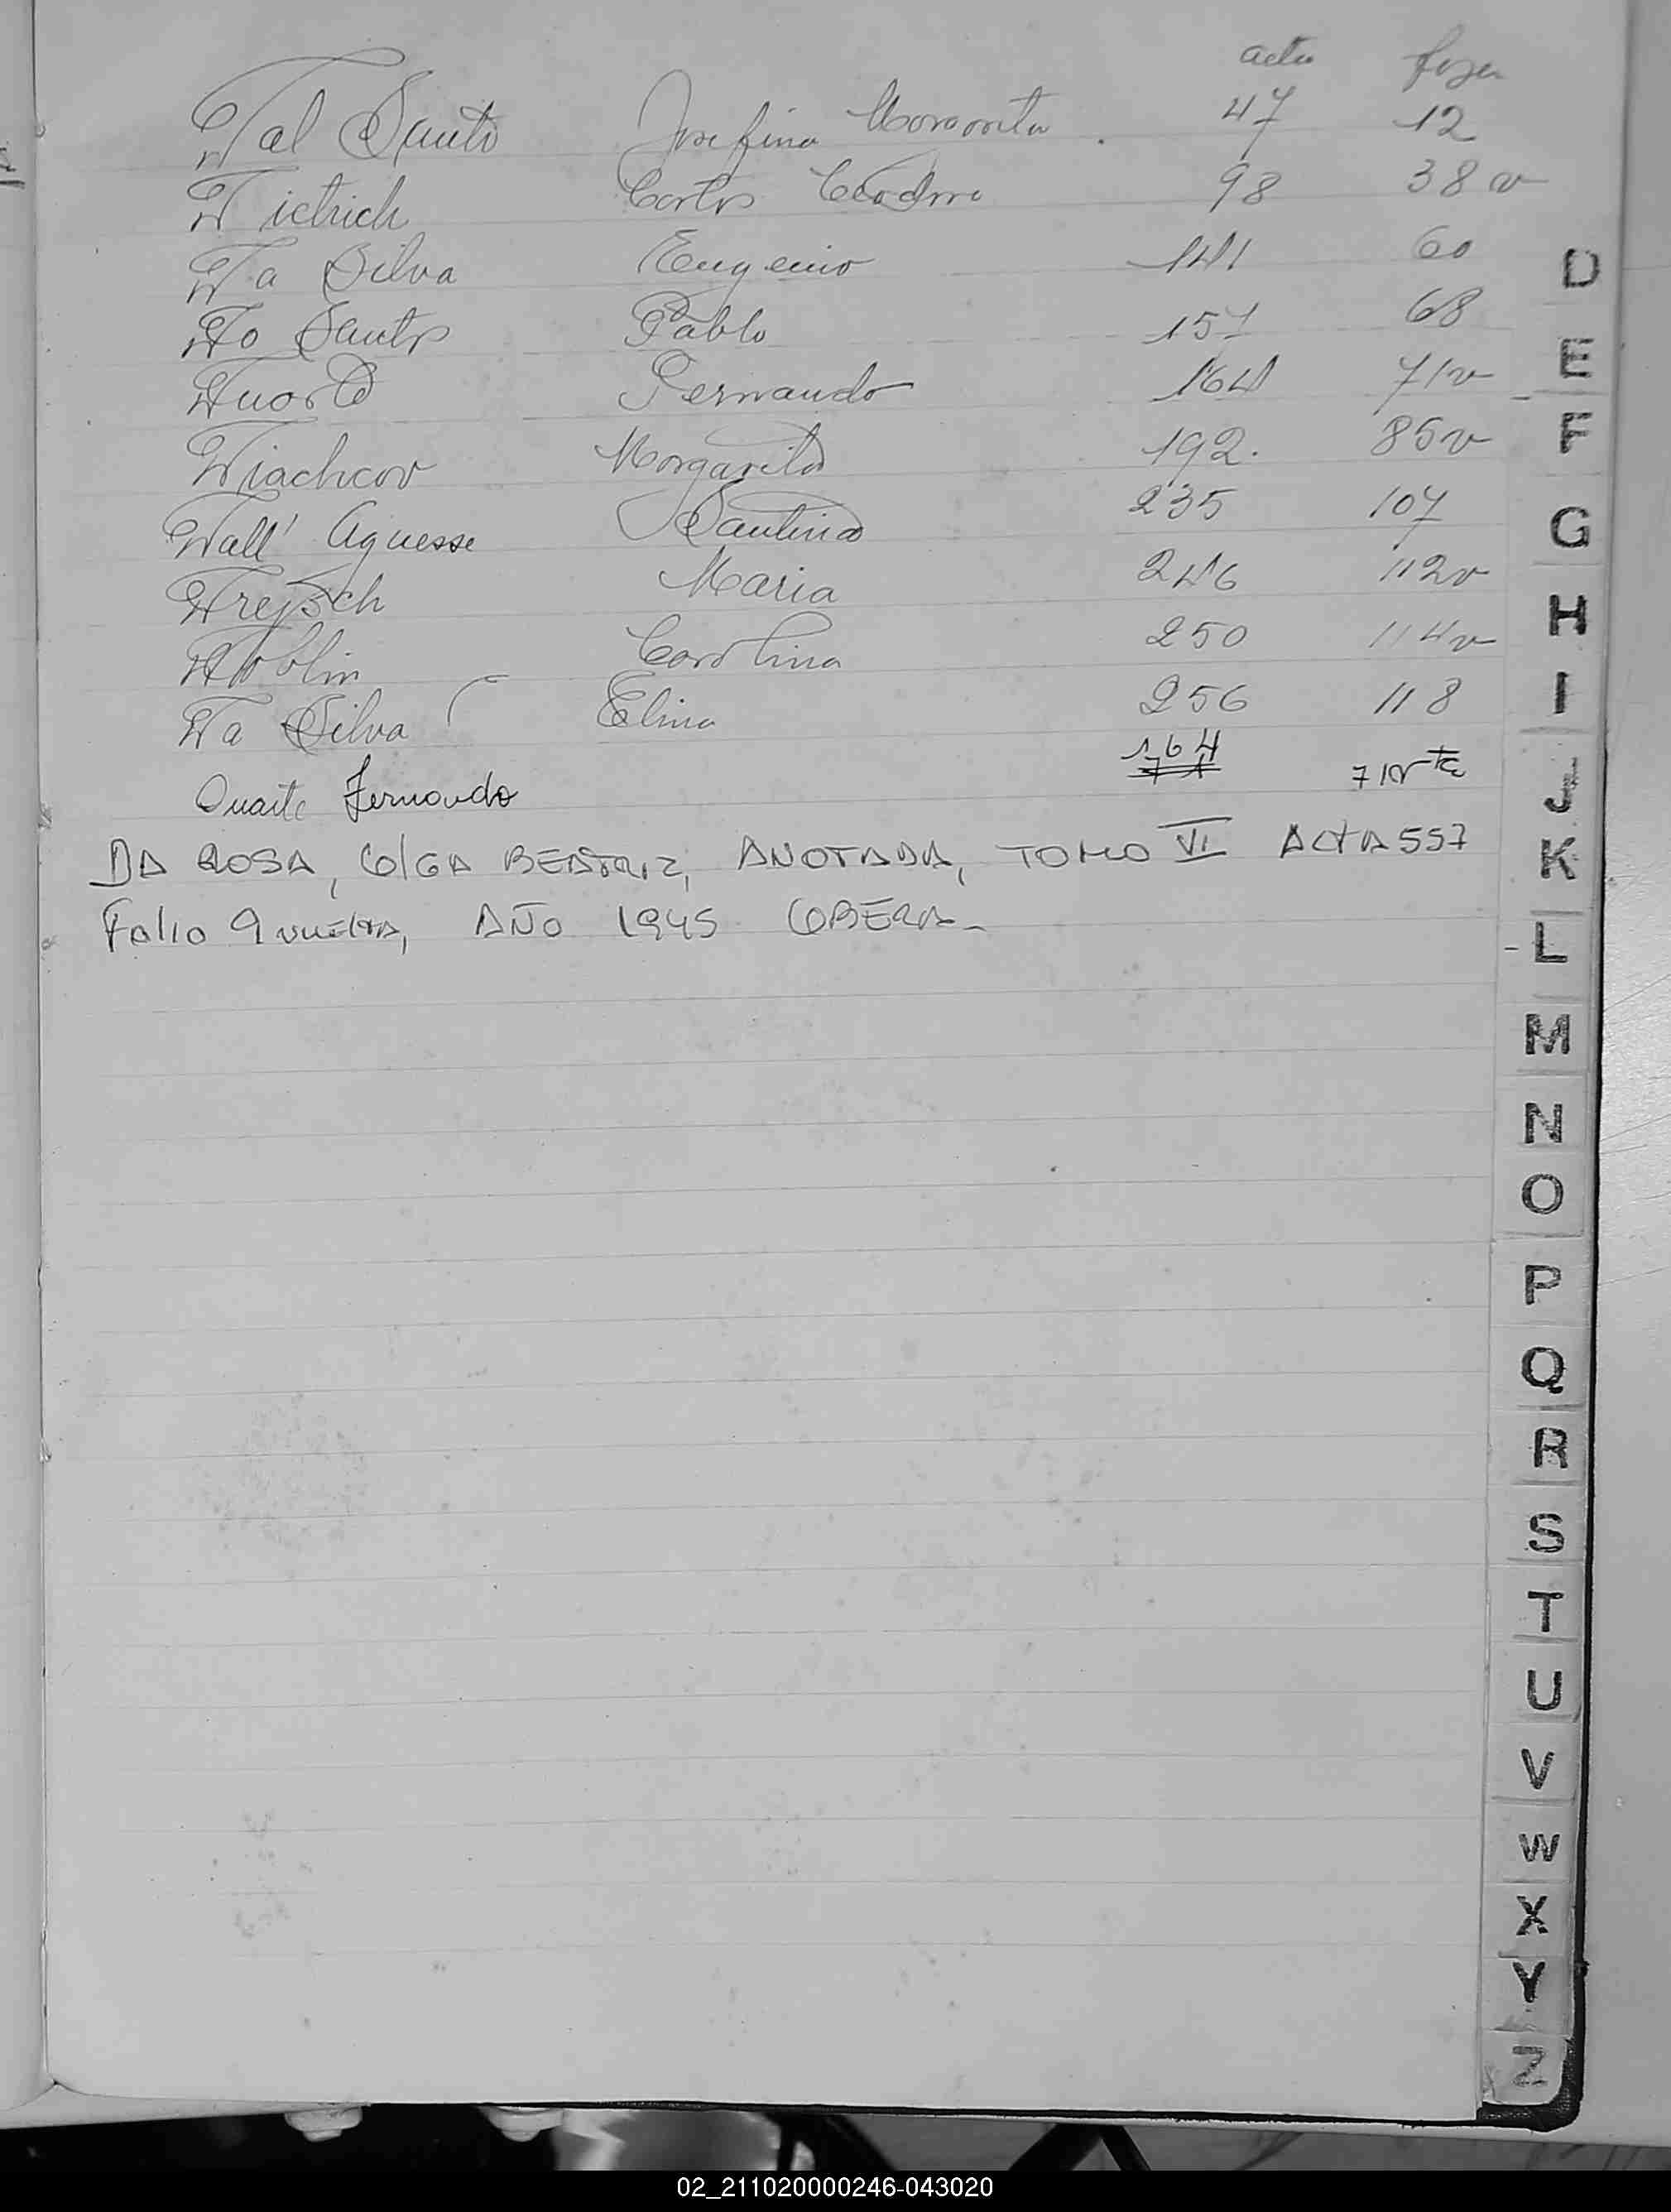 acta foja
Dal Santo Josefina Margarita 47 12
Dietrich Carlos 98 38 v
Da Silva Eugenio 141 60
Do Santos Pablo 157 68
Duarte Fernando 164 71v
Diachcov Margarita 192. 85v
Dall' Agnesse Santina 235 107
Dreysch Maria 246 112v
Doblin Carolina 250 114v
Da Silva Elina 256 118
Duarte Fernando 164 71 vta
DA ROSA, OLGA BEATRIZ, ANOTADA, TOMO VI ACTA 557
Folio 9 vuelta, AÑO 1945 OBERA-
D
E
F
G
H
I
J
K
L
M
N
O
P
Q
R
S
T
U
V
W
X
Y
Z
02_211020000246-043020